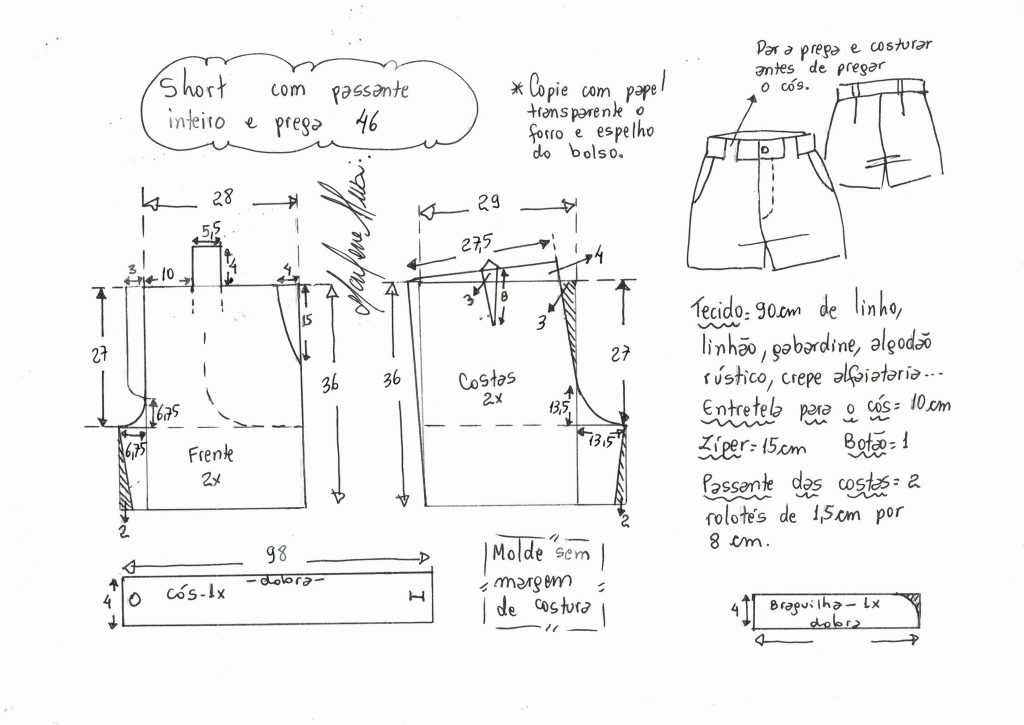 Short com passante
inteiro e prega 46
* Copie com papel
transparente o
forro e espelho
do bolso.
Dar a prega e costurar
antes de pregar
o cós.
Marlene Mukai...
28
5,5
4
3
10
4
15
27
36
6,75
6,75
Frente
2x
2
29
27,5
4
3
8
3
36
27
Costas
2x
13,5
13,5
2
Tecido = 90cm de linho,
linhão, gabardine, algodão
rústico, crepe alfaiataria...
Entretela para o cós = 10cm
Zíper = 15cm Botão = 1
Passante das costas = 2
rolotés de 1,5cm por
8 cm.
98
4
cós - 1x
- dobra -
Molde sem
margem
de costura
4
Braguilha - 1x
dobra